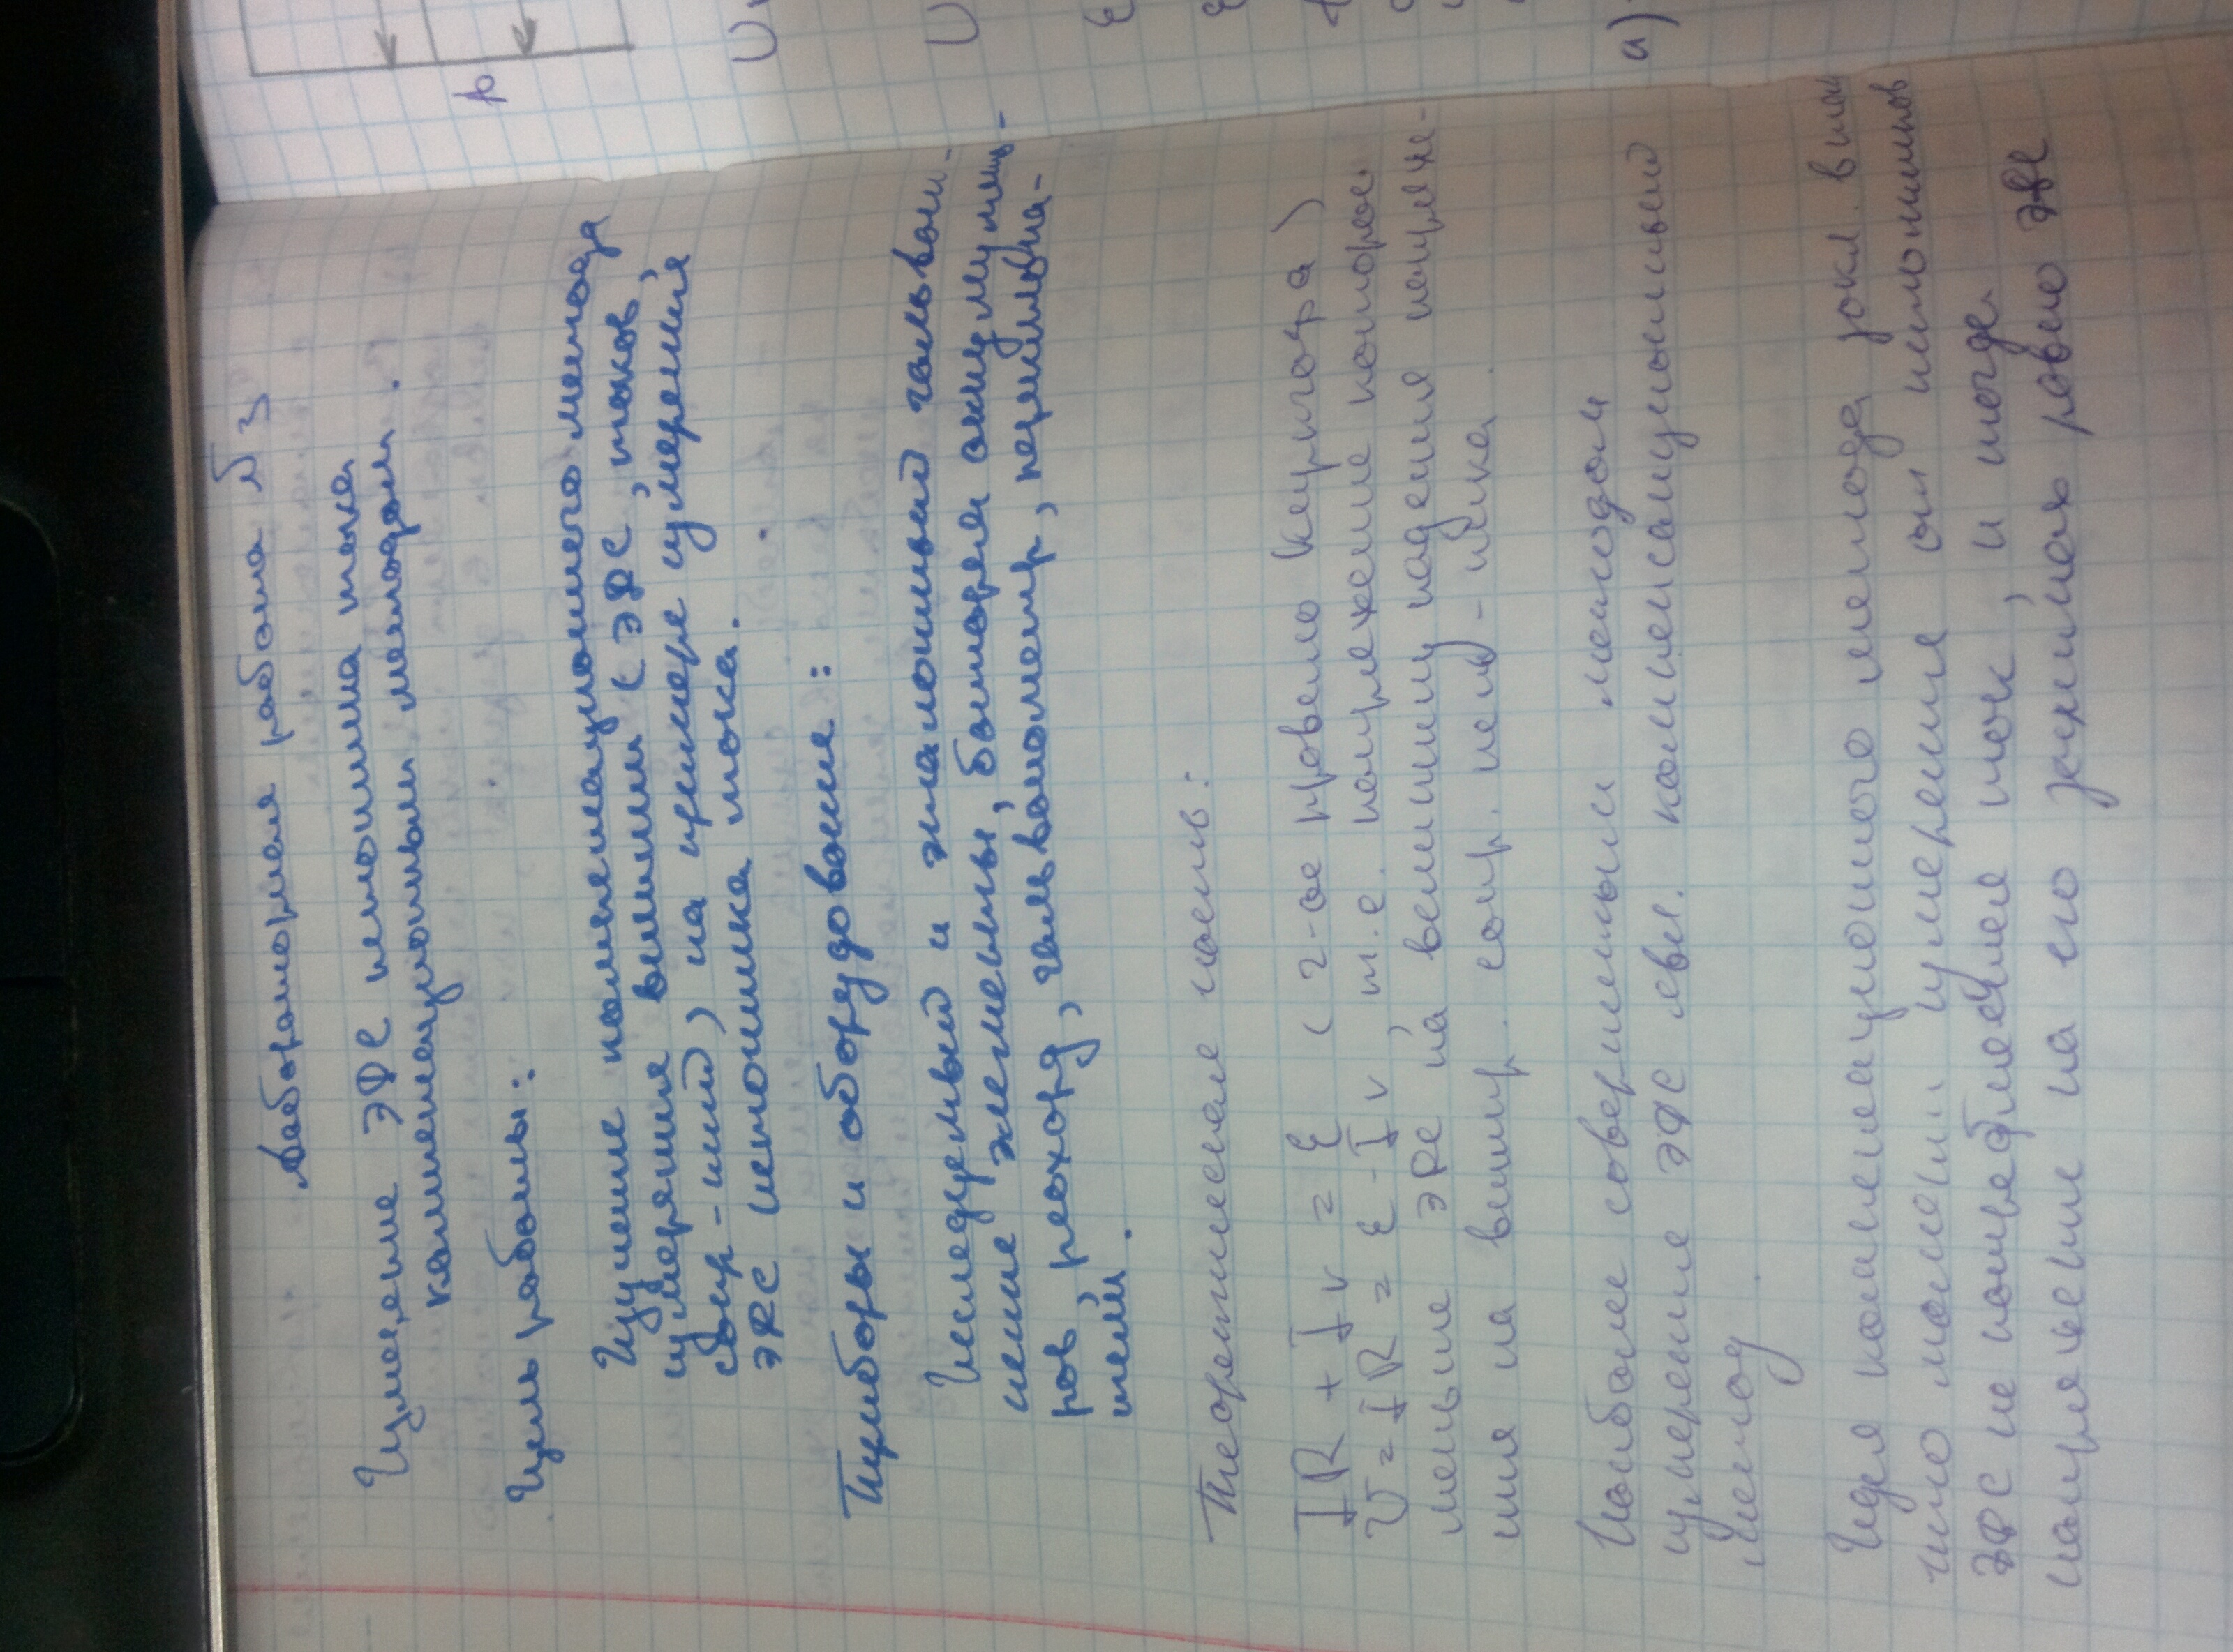 Лабораторная работа № 3
Измерение ЭДС источника тока
компенсационным методом.
Цель работы:
Изучение компенсационного метода
измерения величин (ЭДС, токов,
сопр-ний), на примере измерения
ЭДС источника тока.
Приборы и оборудование:
Исследуемый и эталонный гальвани-
ческие элементы, батарея аккумулято-
ров, реохорд, гальванометр, переключа-
тели.
Теоретическая часть:
IR + Ir = ε (2-ое правило Кирхгофа)
U = IR = ε - Ir, т.е. напряжение которое
меньше ЭДС на величину падения напряже-
ния на внутр. сопр. ист-ника.
Наиболее совершенным методом
измерение ЭДС явл. компенсационный
метод.
Идея компенсационного метода закл. в том
что можем измерения он источников
ЭДС не потребляется ток, и тогда
напряжение на его зажимах равно эдс
а)